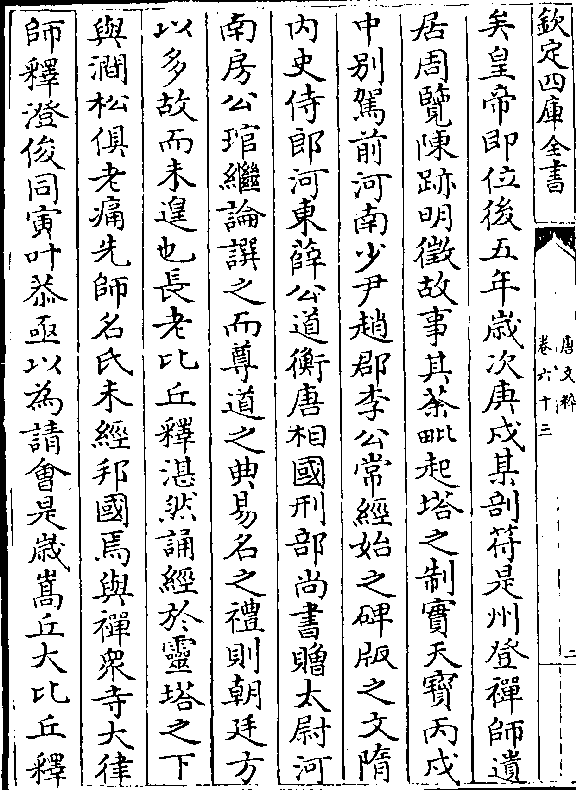 欽定四庫全書
唐文粹
卷六十三
二
矣皇帝即位後五年歳次庚戍某剖符是州登禪師遺
居周覽陳跡明徵故事其荼毗起塔之制實天寳丙戍
中别駕前河南少尹趙郡李公常經始之碑版之文隋
内史侍郎河東薛公道衡唐相國刑部尚書贈太尉河
南房公琯繼論譔之而尊道之典易名之禮則朝廷方
以多故而未遑也長老比丘釋湛然誦經於靈塔之下
與澗松俱老痛先師名氏未經邦國焉與禪衆寺大律
師釋澄俊同寅叶恭亟以為請會是歳嵩丘大比丘釋